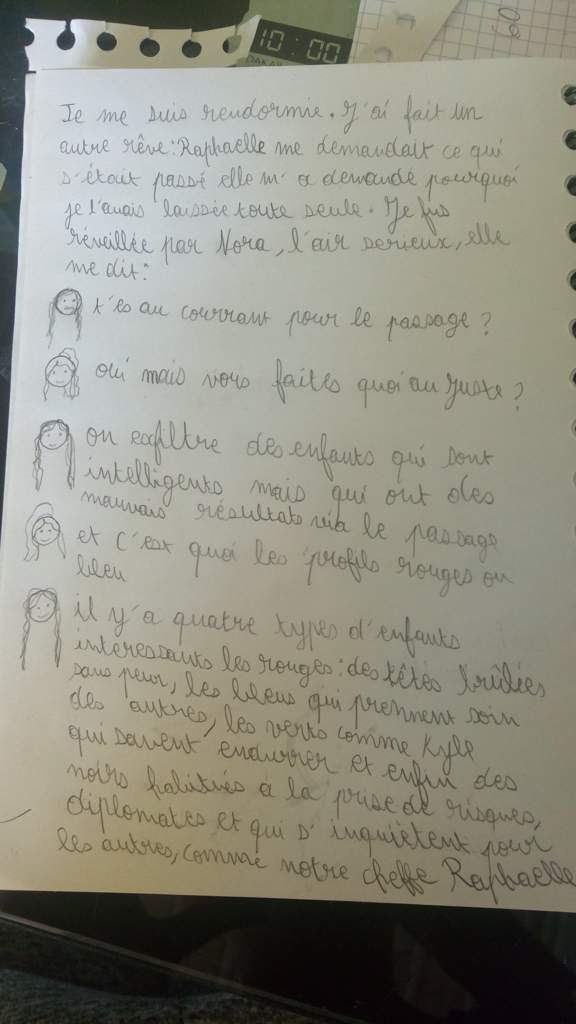 10:00
60
Je me suis rendormie. J'ai fait un
autre rêve: Raphaelle me demandait ce qui
s'était passé elle m'a demandé pourquoi
je l'avais laissée toute seule. Je fus
réveillée par Nora, l'air serieux, elle
me dit:
t'es au courrant pour le passage?
oui mais vous faites quoi au juste?
on exfiltre des enfants qui sont
intelligents mais qui ont des
mauvais résultats via le passage
et c'est quoi les profils rouges ou
bleu
il y'a quatre types d'enfants
interessants les rouges: des têtes brûlées
sans peur, les bleus qui prennent soin
des autres, les verts comme Kyle
qui savent endurrer et enfin des
noirs habitués à la prise de risques,
diplomates et qui s'inquiètent pour
les autres, comme notre cheffe Raphaelle